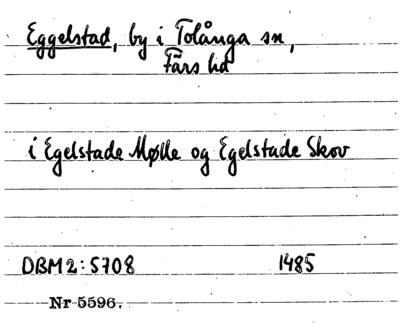 Eggelstad, by i Tolånga sn,
Färs hd
i Egelstade Mølle og Egelstade Skov
DBM 2: 5708 1485
Nr 5596.